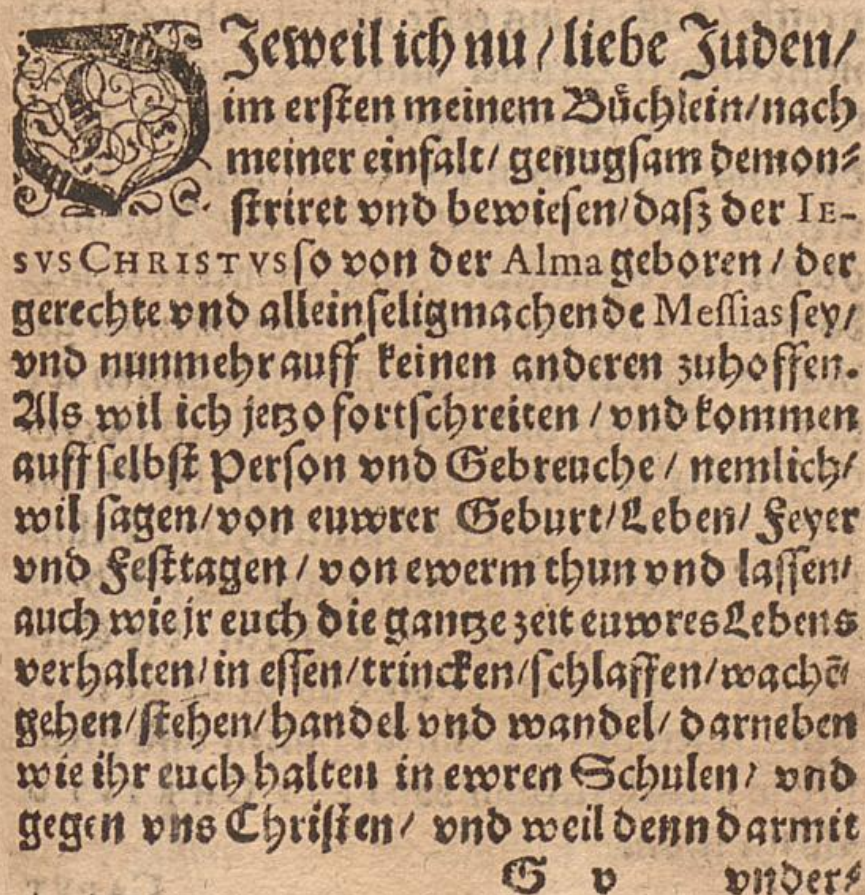 DJeweil ich nu / liebe Juden /
im ersten meinem Bůchlein / nach
meiner einfalt / genugsam demon⸗
striret vnd bewiesen / dasz der IE-
SVS CHRISTVS so von der Alma geboren / der
gerechte vnd alleinseligmachende Messias sey /
vnd nunmehr auff keinen anderen zuhoffen.
Als wil ich jetzo fortschreiten / vnd kommen
auff selbst Person vnd Gebreuche / nemlich /
wil sagen / von euwrer Geburt / Leben / Feyer
vnd Festtagen / von ewerm thun vnd lassen /
auch wie jr euch die gantze zeit euwres Lebens
verhalten / in essen / trincken / schlaffen / wachē
gehen / stehen / handel vnd wandel / darneben
wie ihr euch halten in ewren Schulen / vnd
gegen vns Christen / vnd weil denn darmit
G v vnder⸗